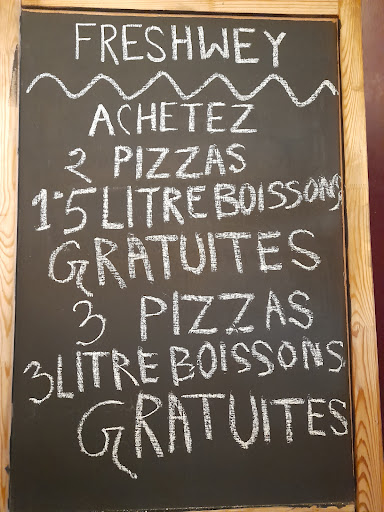 FRESHWEY
ACHETEZ
2 PIZZAS
1.5 LITRE BOISSONS
GRATUITES
3 PIZZAS
3 LITRE BOISSONS
GRATUITES